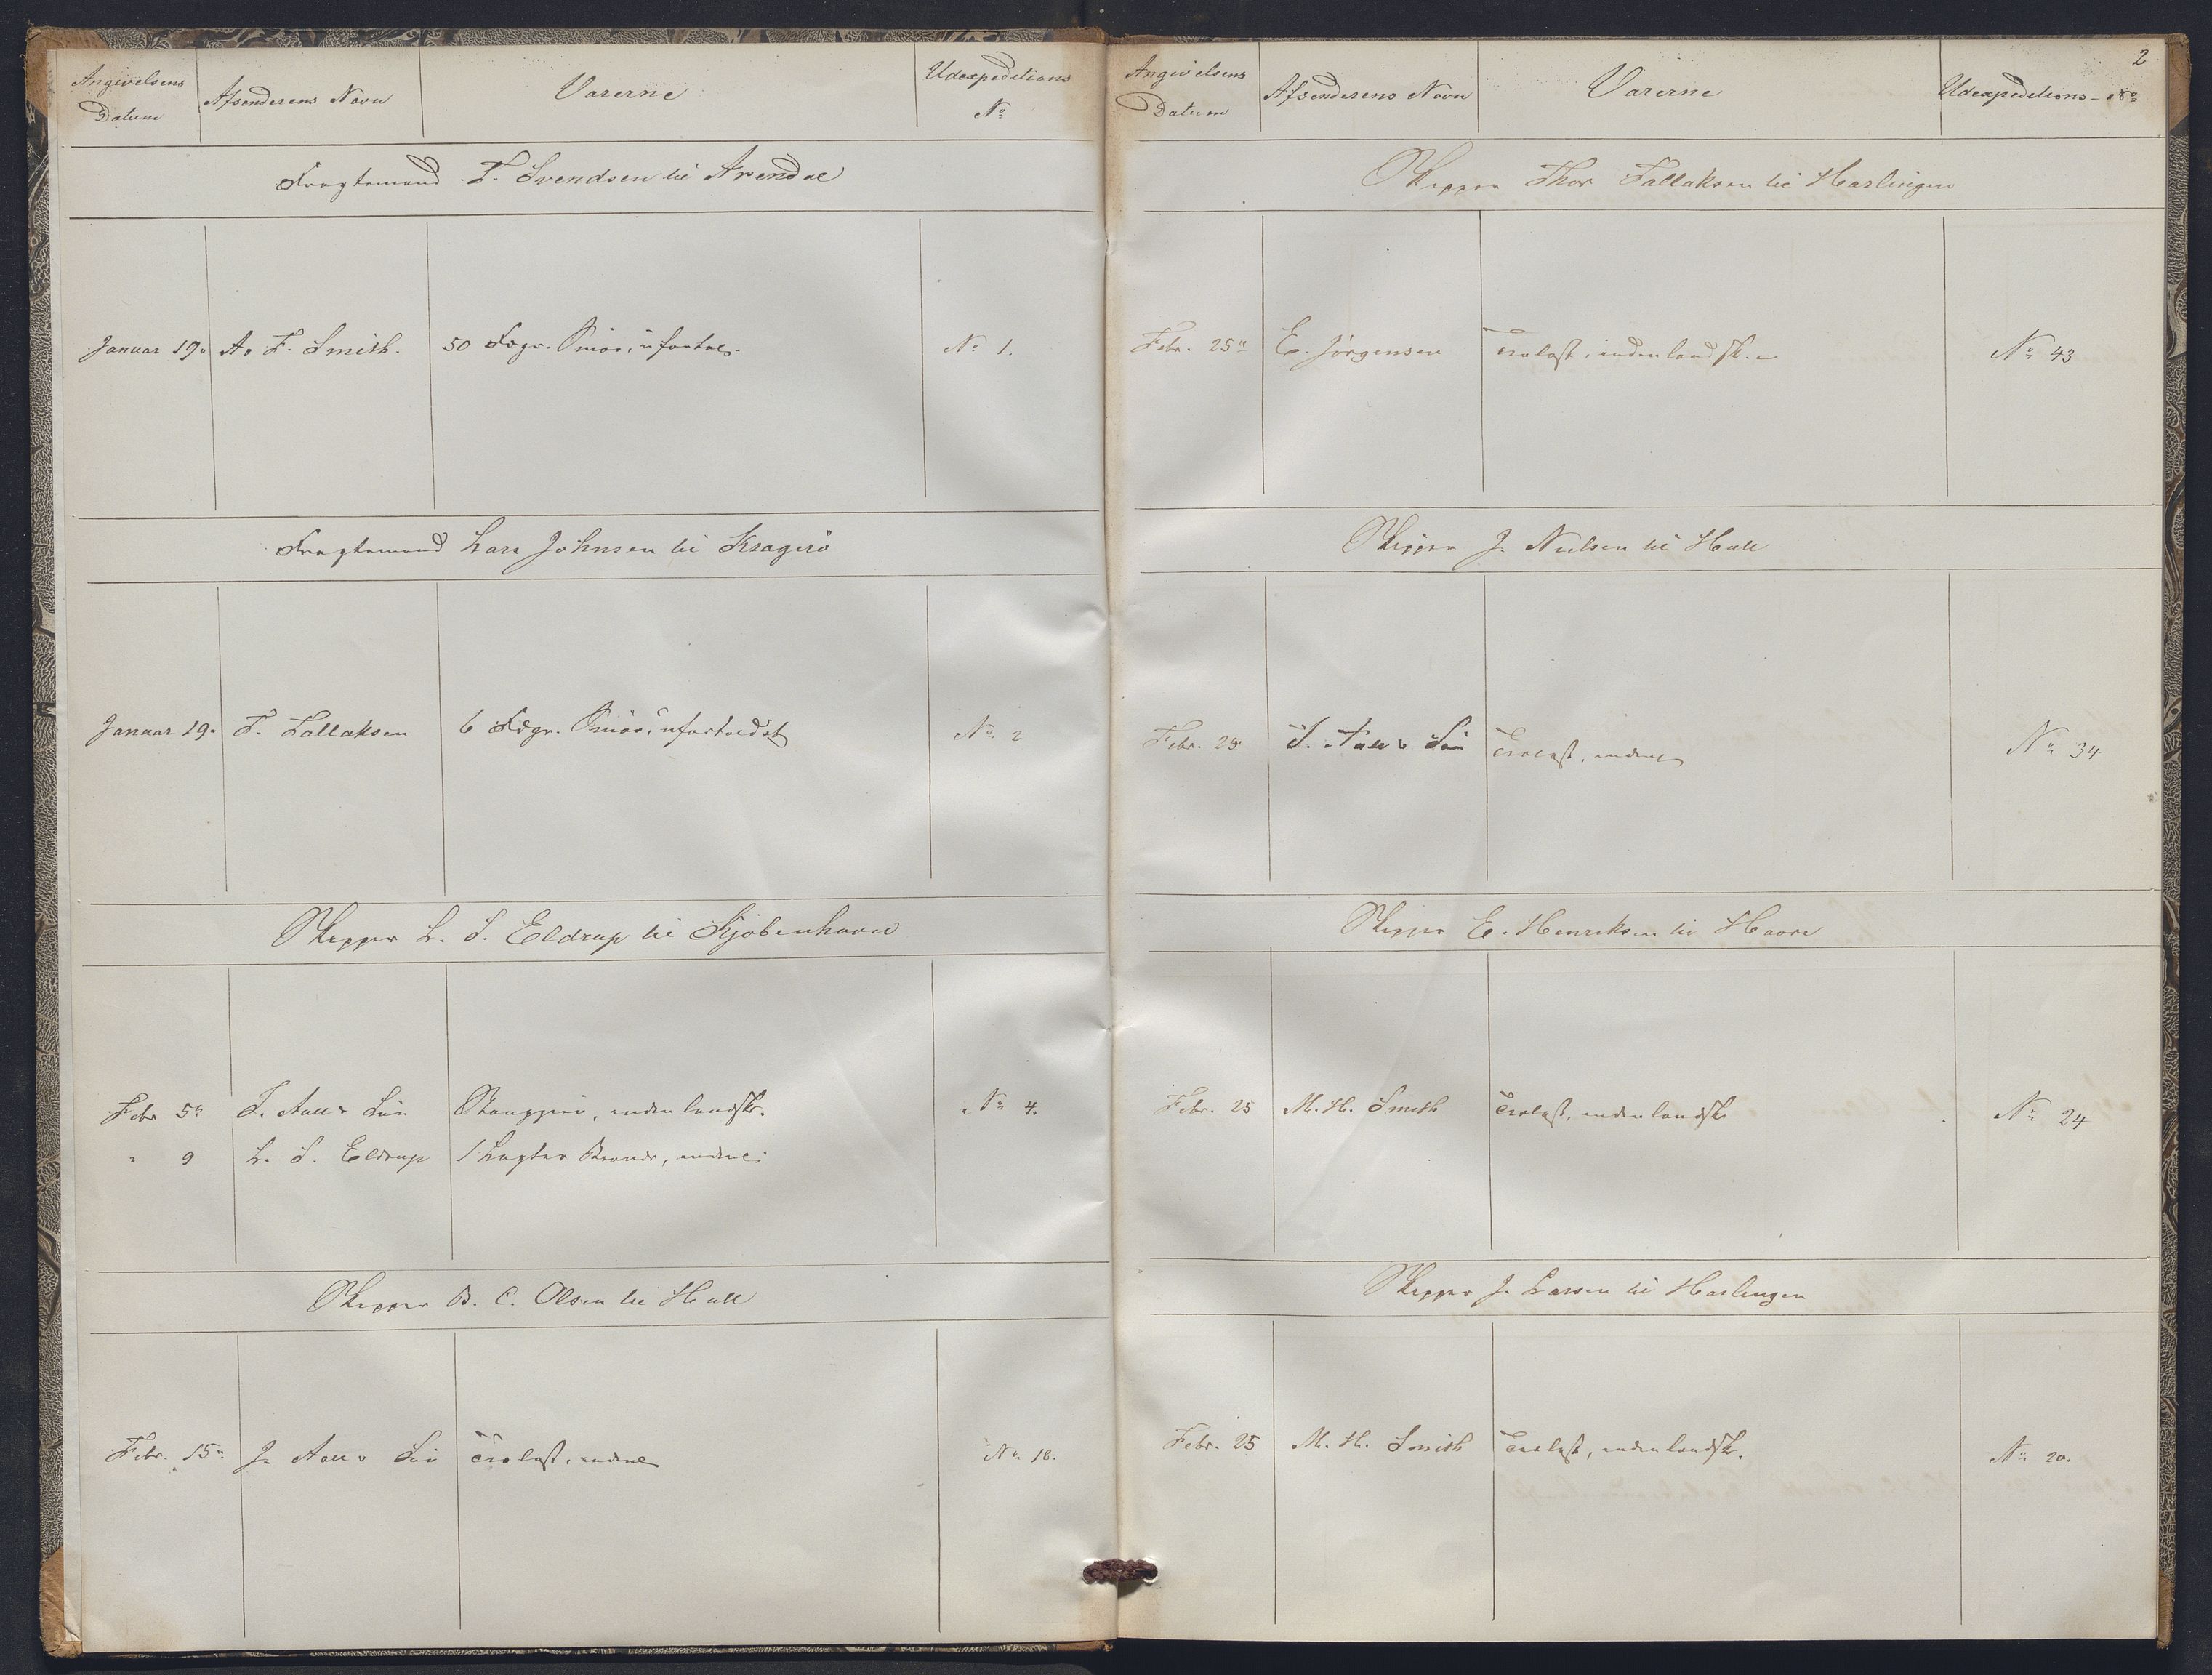 Angivelsens Datum
Afsenderens Navn
Varerne
Udexpeditions No
Fragtemand T. Svendsen til Arendal
Januar 19.
A. F. Smith.
50 Fdgr. Smör, ufortol.
No 1.
Fragtemand Lars Johnsen til Kragerö
Januar 19.
T. Tallaksen
6 Fdgr. Smör, ufortoldet
No 2
Skipper L. S. Eldrup til Kjöbenhavn
Febr 5
J. Aall & Sön
indenlandsk.
No 4.
" 9
L. S. Eldrup
1 Lagter Brænde, indenl.
Skipper B. C. Olsen til Hull
Febr. 15
J. Aall & Sön
Trælast, indenl
No 18.
2
Angivelsens Datum
Afsenderens Navn
Varerne
Udexpeditions-No
Skipper Thor Tallaksen til Harlingen
Febr. 25
E. Jörgensen
Trælast, indenlandsk.
No 43
Skipper J. Nielsen til Hull
Febr. 25
J. Aall & Sön
Trælast, indenl
No 34
Skipper E. Henriksen til Havre
Febr. 25
M. H. Smith
Trælast, indenlandsk
No 24
Skipper J. Larsen til Harlingen
Febr. 25
M. H. Smith
Trælast, indenlandsk.
No 20.